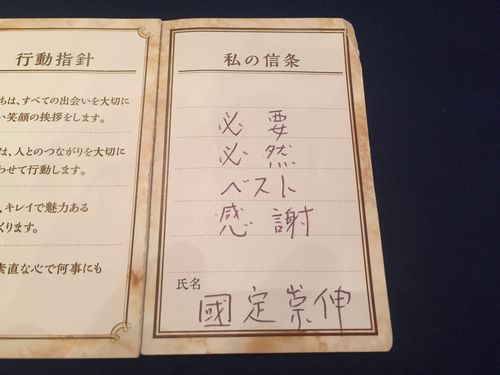 行動指針
ちは、すべての出会いを大切に
い笑顔の挨拶をします。
は、人とのつながりを大切に
わせて行動します。
、キレイで魅力ある
くります。
素直な心で何事にも
私の信条
必要
必然
ベスト
感謝
氏名
國定崇伸